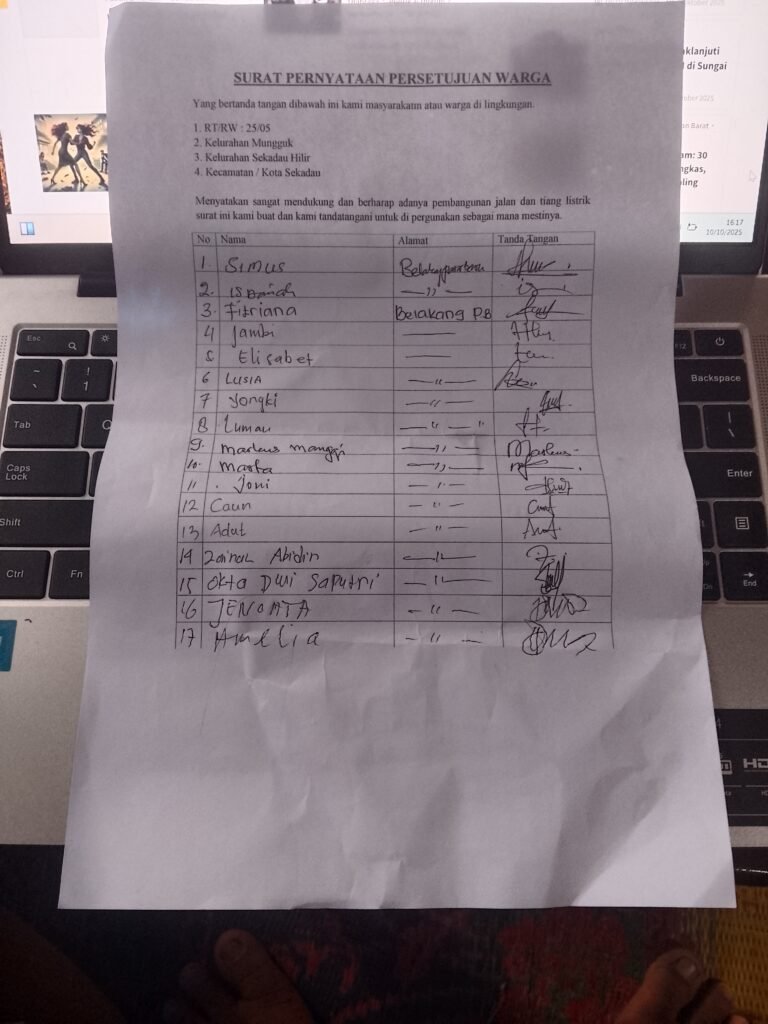 oktober 2025
aklanjuti
di Sungai
ober 2025
an Barat -
am: 30
ngkas,
ling
16:17
10/10/2025
SURAT PERNYATAAN PERSETUJUAN WARGA
Yang bertanda tangan dibawah ini kami masyarakatn atau warga di lingkungan.
1. RT/RW : 25/05
2. Kelurahan Mungguk
3. Kelurahan Sekadau Hilir
4. Kecamatan / Kota Sekadau
Menyatakan sangat mendukung dan berharap adanya pembangunan jalan dan tiang listrik
surat ini kami buat dan kami tandatangani untuk di pergunakan sebagai mana mestinya.
No Nama Alamat Tanda Tangan
1. Simus
2. — " —
3. Fitriana Belakang PB
4 Jambi —
5 Elisabet —
6 LUSIA — " —
7 Yongki — " —
8 Luman — " — "
9. Markus — " — Markus
10. Marta — " —
11. Joni — " —
12 Caun — " —
13 Adut — " —
14 Zainal Abidin — " —
15 Okta Dwi Saputri — " —
16 JENOATA — " —
17 Amelia — " —
Esc
~
`
!
1
Tab
Q
Caps
Lock
Shift
Ctrl
Fn
F12
Backspace
|
\
Enter
End
HD